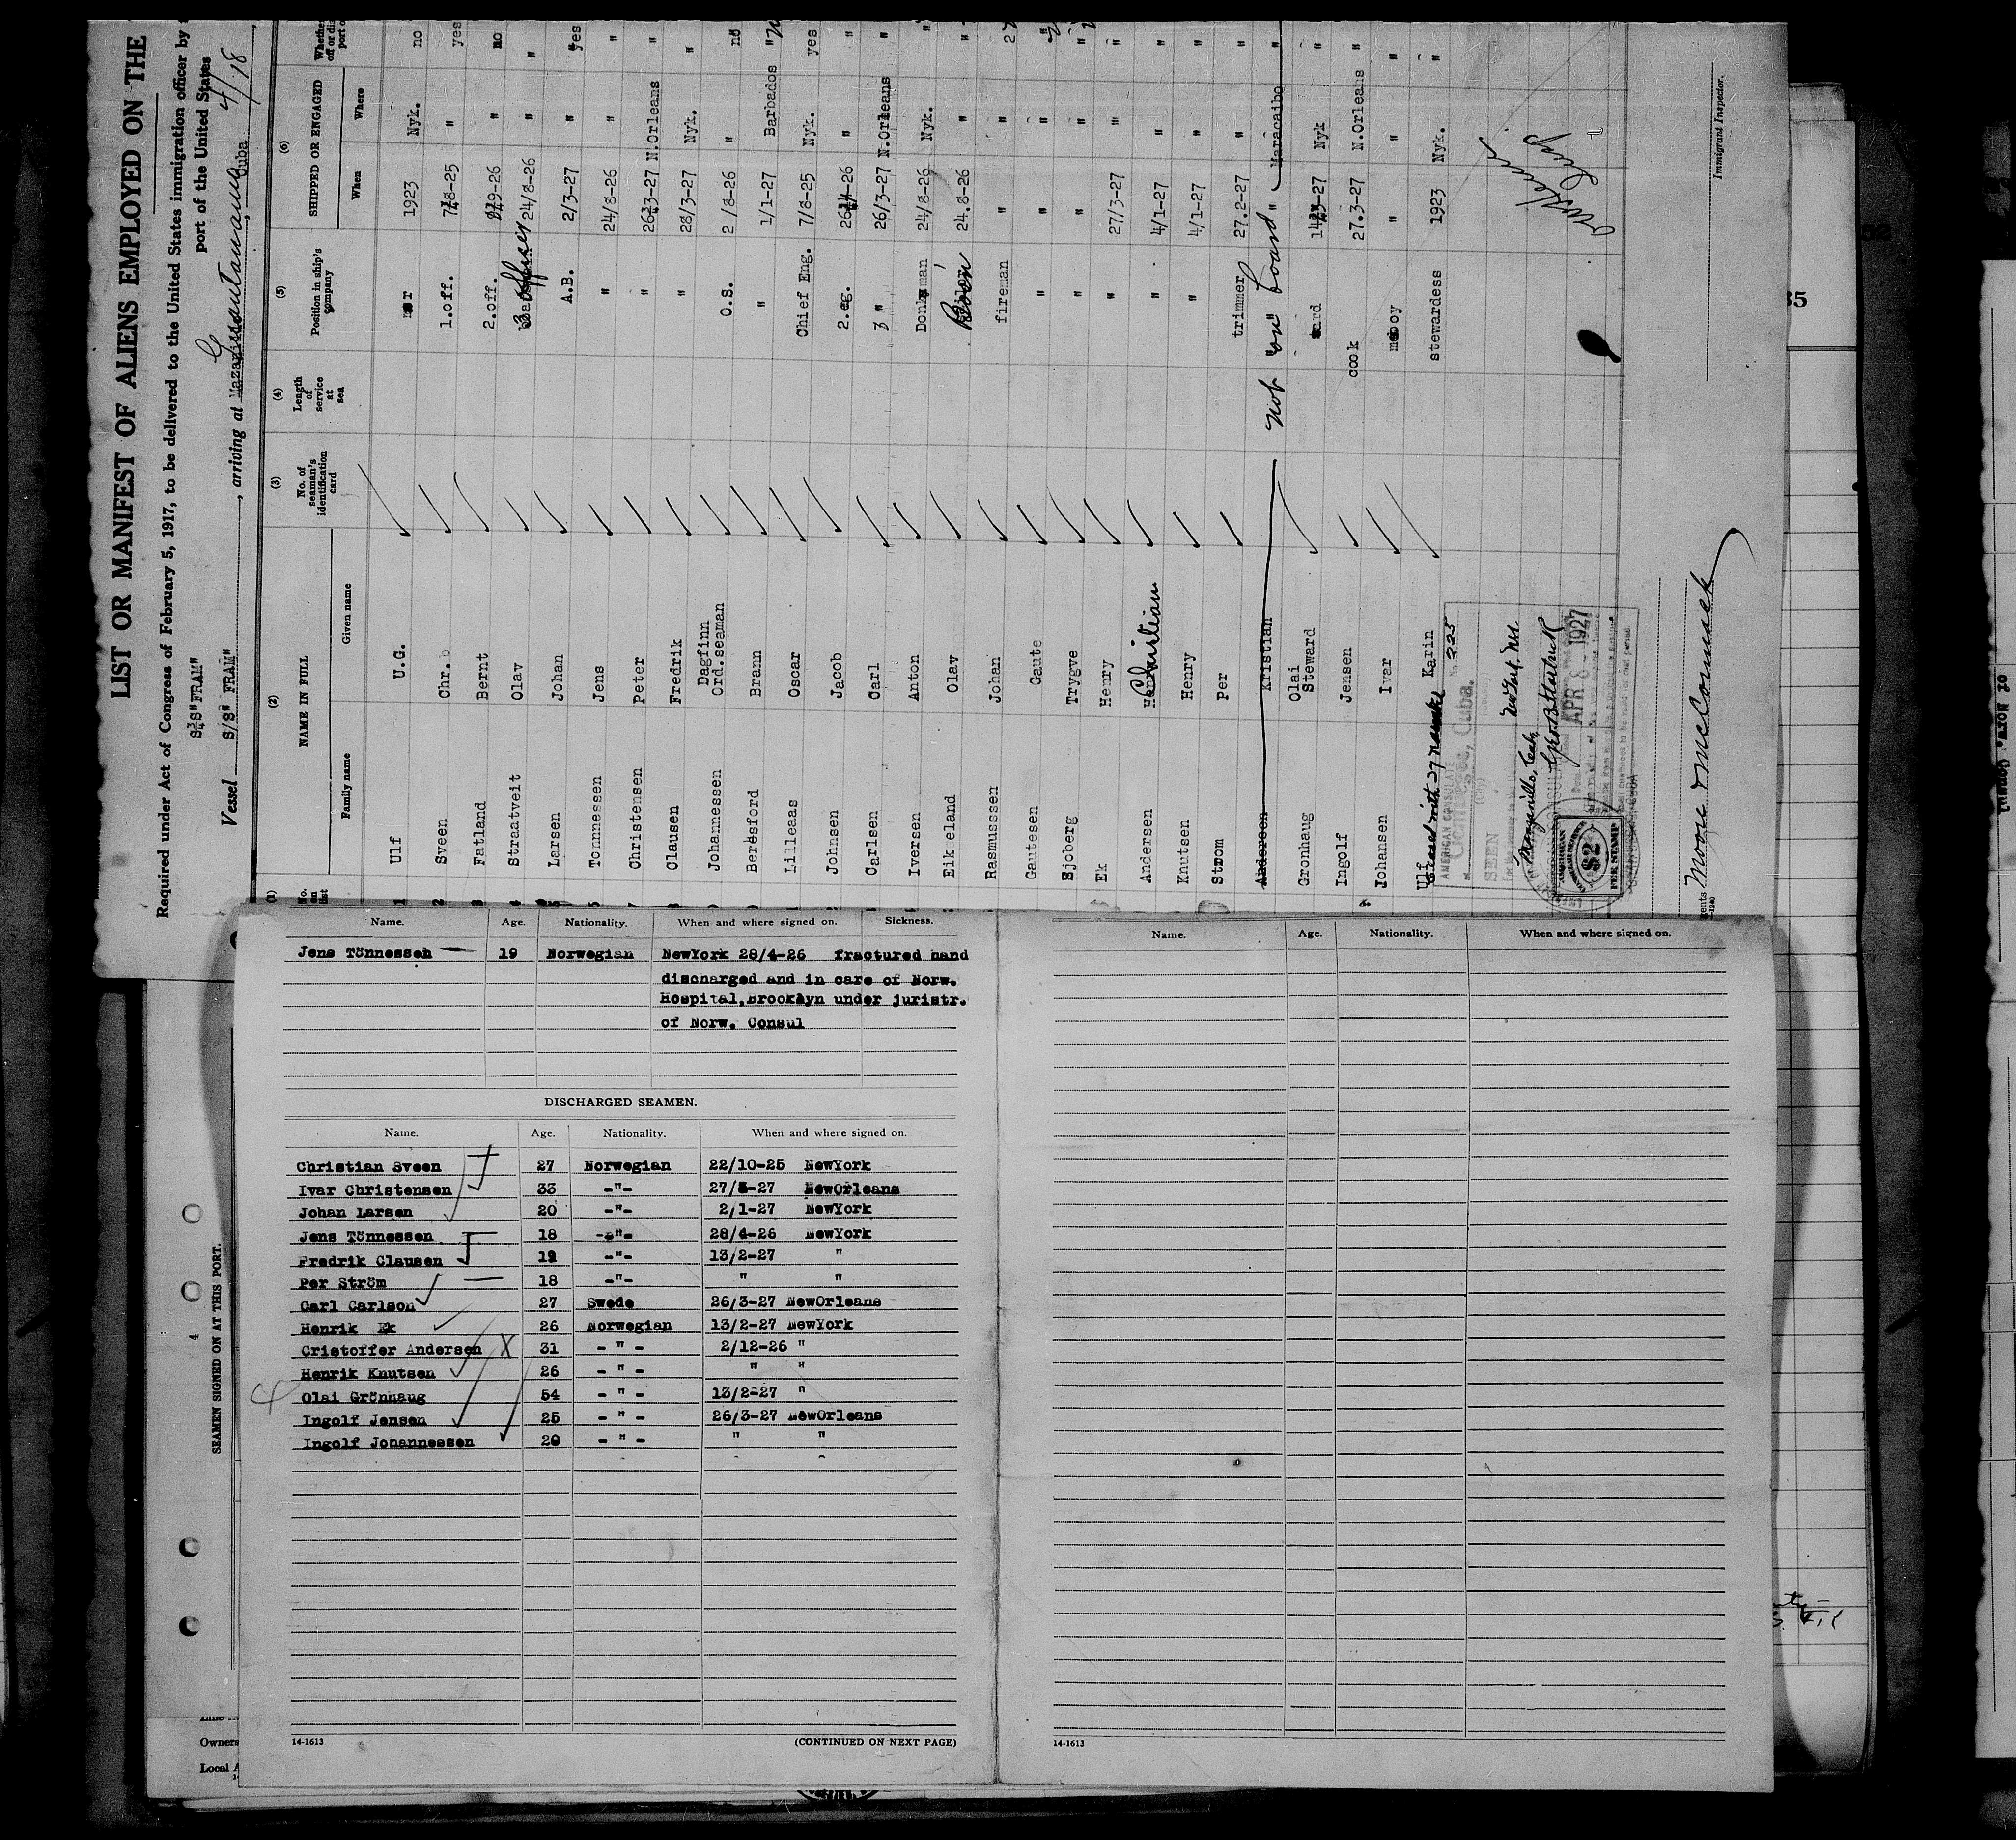 LIST OR MANIFEST OF ALIENS EMPLOYED ON THE
Required under Act of Congress of February 5, 1917, to be delivered to the United States immigration officer by
port of the United States
S/S"FRAM"
Vessel S/S" FRAM" , arriving at Guantanamo, Cuba 4/18
(1) (2) (3) (4) (5) (6)
No. on list
NAME IN FULL
Family name Given name
No. of seaman's identification card
Length of service at sea
Position in ship's company
SHIPPED OR ENGAGED
When Where
1 Ulf U.G. 1923 Nyk. no
2 Sveen Chr. 1.off. 8-25 " yes
3 Fatland Bernt 2.off. 9-26 " no
4 Straatveit Olav 3 officer 24/8-26 " "
Larsen Johan A.B. 2/3-27 " yes
5 Tonnessen Jens " 24/8-26 " "
7 Christensen Peter " 3-27 N.Orleans "
8 Clausen Fredrik " 28/3-27 Nyk. "
Johannessen Dagfinn Ord.seaman O.S. 2/8-26 " no
Beresford Brann " 1/1-27 Barbados "
Lilleaas Oscar Chief Eng. 7/8-25 Nyk. yes
Johnsen Jacob 2.eg. 26 -26 " "
Carlsen Carl 3 " 26/3-27 N.Orleans "
Iversen Anton Donkman 24/8-26 Nyk. "
Eikeland Olav 24.8-26 " "
Rasmusssen Johan fireman " "
Gautesen Gaute " " "
Sjoberg Trygve " " " "
Ek Henry " 27/3-27 " "
Andersen Christian " 4/1-27 " "
Knutsen Henry " 4/1-27 " "
Strom Per trimmer 27.2-27 " "
Andersen Kristian not "on" board " Maracaibo "
Gronhaug Olai Steward 3-27 Nyk "
Ingolf Jensen cook 27.3-27 N.Orleans "
Johansen Ivar " " "
Ulf Karin stewardess 1923 Nyk. "
AMERICAN CONSULATE
Cuba.
No 225
SEEN
Manzanillo, Cuba
New York
APR 8 1927
AMERICAN
$2
FEE STAMP
Moore & McCormack
Immigrant Inspector.
Name. Age. Nationality. When and where signed on. Sickness.
Jens Tönnessen 19 Norwegian NewYork 28/4-26 fractured hand
discharged and in care of Norw.
Hospital,Brooklyn under juristr.
of Norw. Consul
DISCHARGED SEAMEN.
Name. Age. Nationality. When and where signed on.
Christian Sveen 27 Norwegian 22/10-25 NewYork
Ivar Christensen 33 -"- 27/3-27 NewOrleans
Johan Larsen 20 -"- 2/1-27 NewYork
Jens Tönnessen 18 -"- 28/4-26 NewYork
Fredrik Clausen 19 -"- 13/2-27 "
Per Ström 18 -"- " "
Carl Carlson 27 Swede 26/3-27 NewOrleans
Henrik Ek 26 Norwegian 13/2-27 NewYork
Cristoffer Andersen 31 - " - 2/12-26 "
Henrik Knutsen 26 - " - " "
Olai Grönhaug 54 - " - 13/2-27 "
Ingolf Jensen 25 - " - 26/3-27 NewOrleans
Ingolf Johannessen 20 - " - " "
14-1613 (CONTINUED ON NEXT PAGE)
Name. Age. Nationality. When and where signed on.
14-1613
SEAMEN SIGNED ON AT THIS PORT.
4
Owners
Local A
35